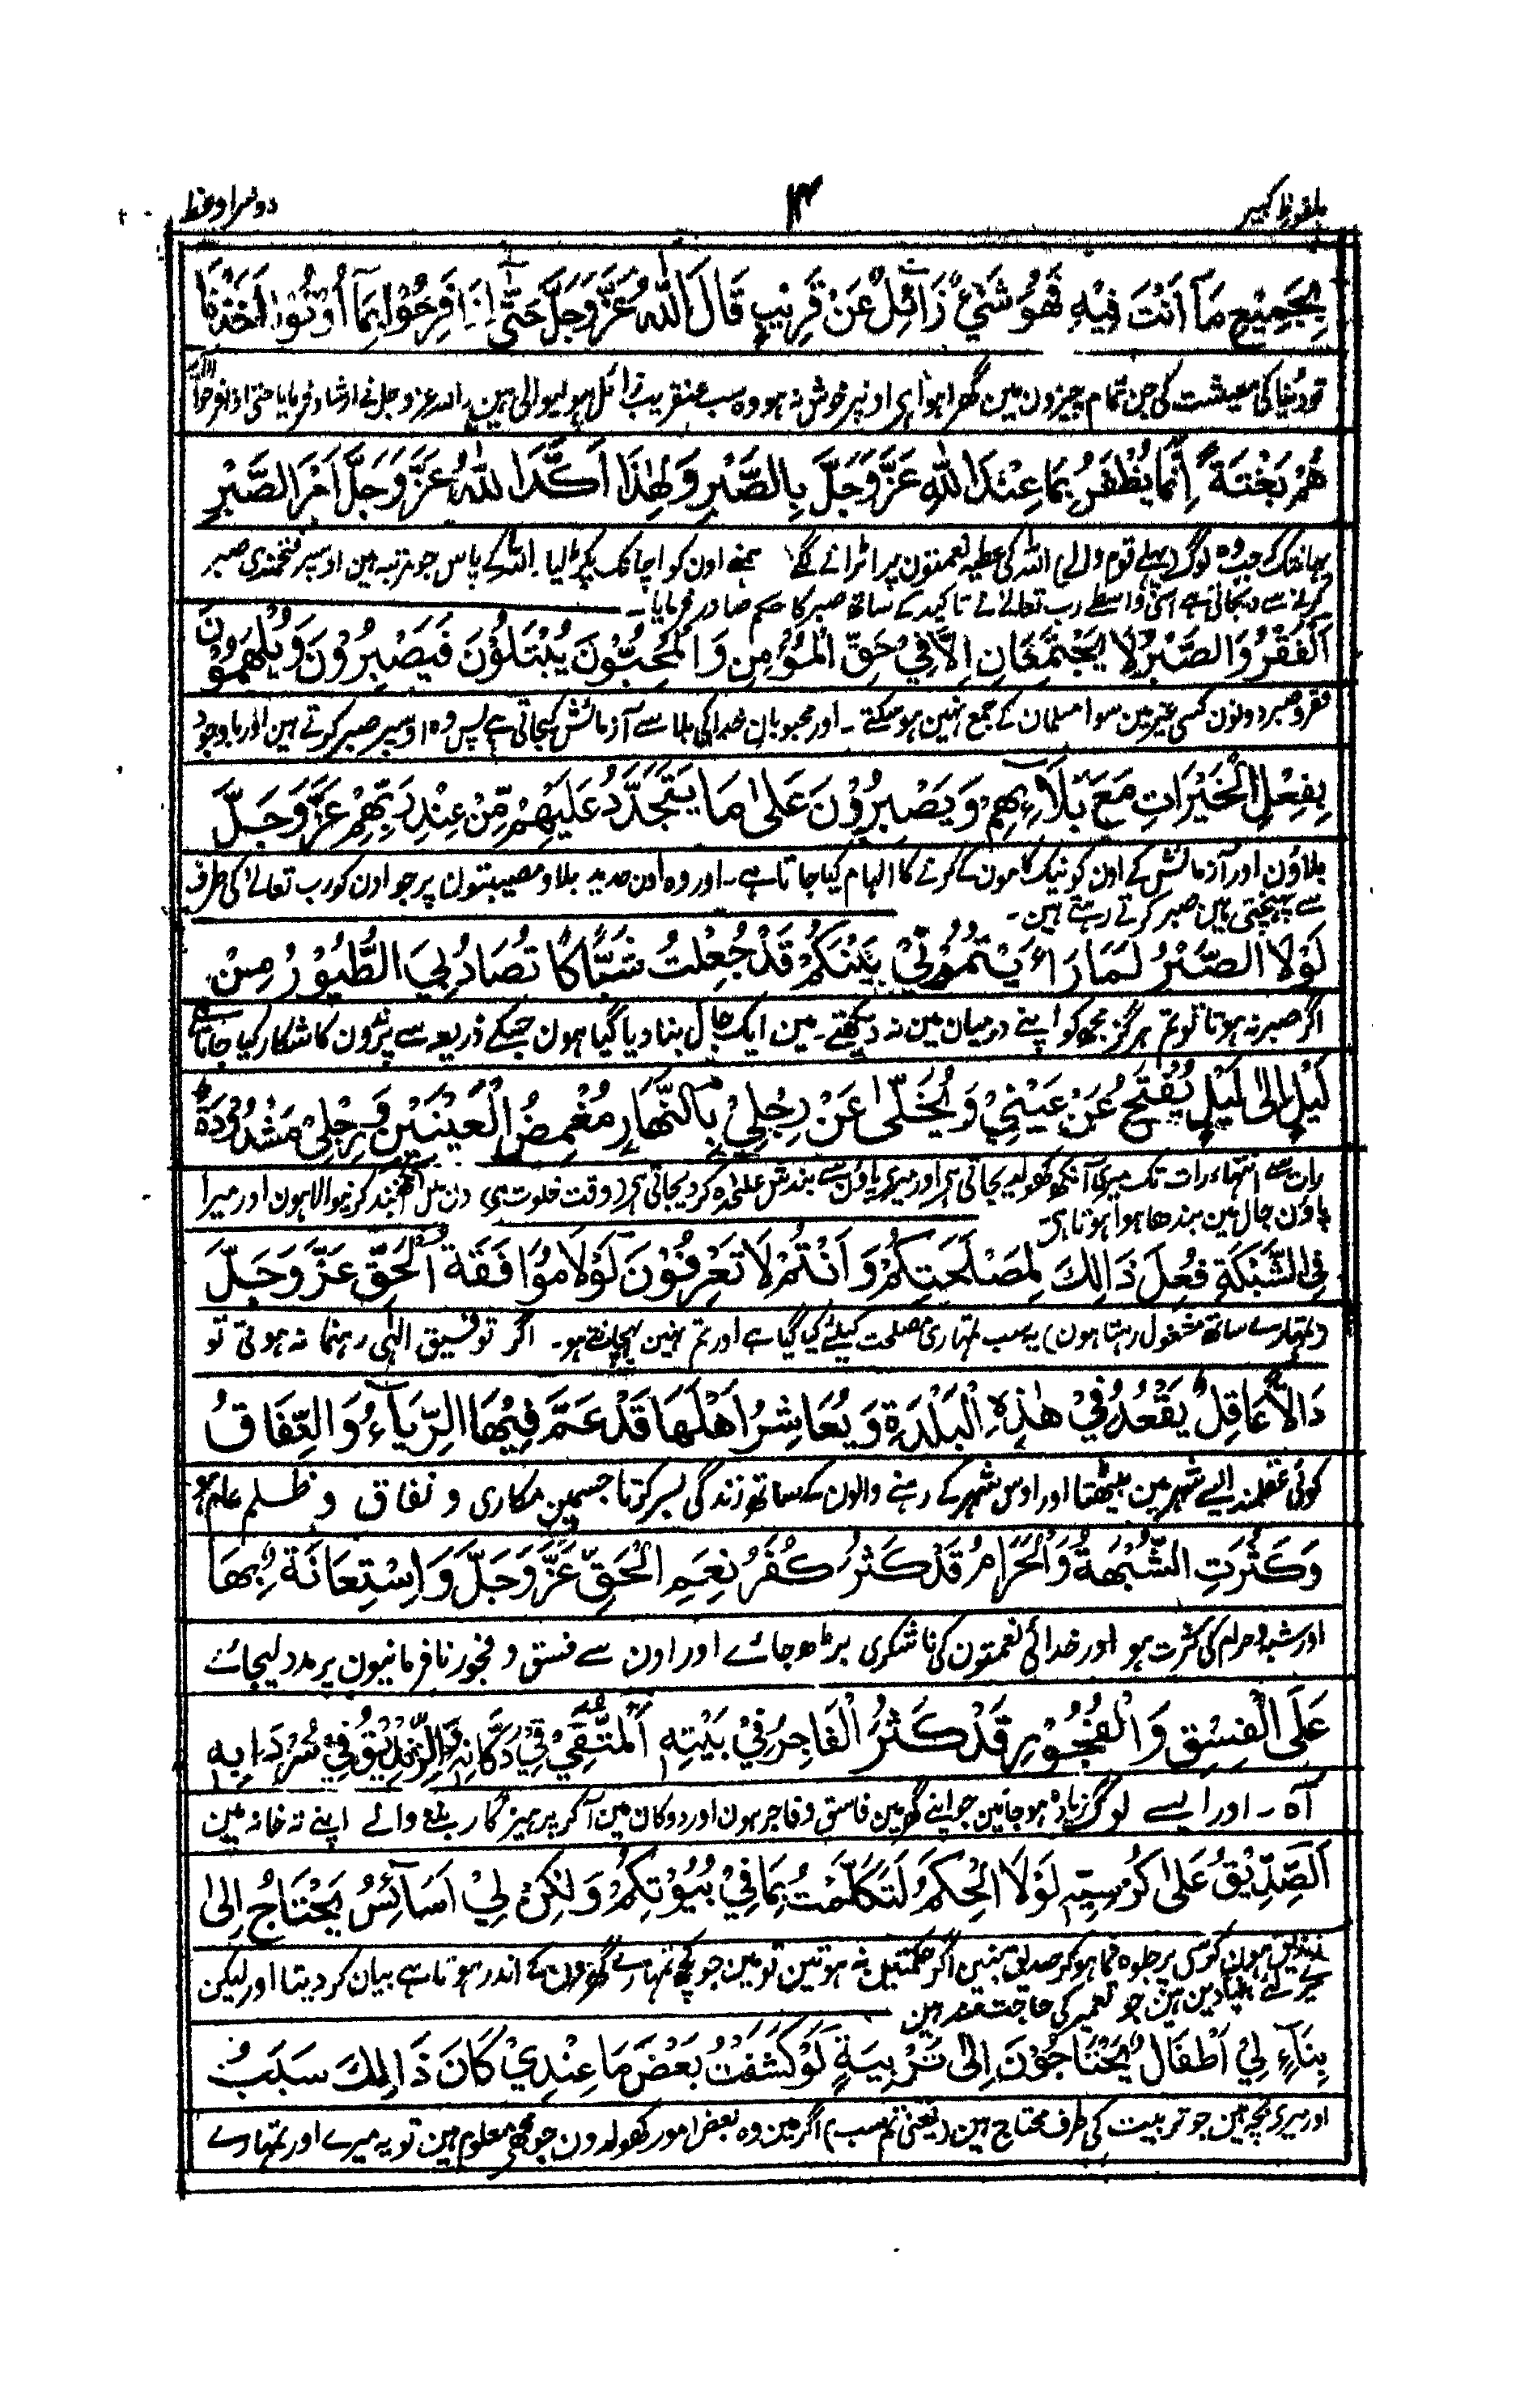 ملفوظ کبیر
۱۴
دوسرا وعظ
بِجَمِیْعِ مَآ اَنْتَ فِیْهِ فَهُوَ شَیْءٌ زَائِلٌ عَنْ قَرِیْبٍ قَالَ اللّٰهُ عَزَّ وَجَلَّ حَتّٰٓی اِذَا فَرِحُوْا بِمَآ اُوْتُوْا اَخَذْنَا
تو دنیا کی معیشت کی جن تمام چیزون مین گھرا ہوا ہی اونپر خوش نہ ہو وہ سب عنقریب زائل ہونیوالی ہین اللہ عزوجل نے ارشاد فرمایا حتی اذا فرحوا الخ
هُمْ بَغْتَةً اِنَّمَا یُظْفَرُ بِمَا عِنْدَ اللّٰهِ عَزَّ وَجَلَّ بِالصَّبْرِ وَلِهٰذَا اَکَّدَ اللّٰهُ عَزَّ وَجَلَّ اَمْرَ الصَّبْرِ
یہانتک کہ جب وہ لوگ پہلے قوم والے اللہ کی عطیہ نعمتون پر اترانے لگے ہمنے اون کو اچانک پکڑ لیا۔ اللہ کے پاس جو مرتبہ ہین اوسپر فتحمندی صبر
کرنے سے دیجاتی ہے اسی واسطے رب تعالےٰ نے تاکید کے ساتھ صبر کا حکم صادر فرمایا۔
اَلْفَقْرُ وَالصَّبْرُ لَا یَجْتَمِعَانِ اِلَّا فِیْ حَقِّ الْمُؤْمِنِ وَالْمُحِبُّوْنَ یُبْتَلُوْنَ فَیَصْبِرُوْنَ وَیُلْهَمُوْنَ
فقر و صبر دونون کسی غیر مین سوا مسلمان کے جمع نہین ہو سکتے۔ اور محبوبان خدا کی بلا سے آزمائش کیجاتی ہے پس وہ اوسپر صبر کرتے ہین اور باوجود
بِفِعْلِ الْخَیْرَاتِ مَعَ بَلَآءِهِمْ وَیَصْبِرُوْنَ عَلٰی مَا یَتَجَدَّدُ عَلَیْهِمْ مِّنْ عِنْدِ رَبِّهِمْ عَزَّ وَجَلَّ
بلاؤن اور آزمائش کے اون کو نیک کامون کے کرنے کا الہام کیا جاتا ہے۔ اور وہ اون جدید بلا و مصیبتون پر جو اون کو رب تعالےٰ کی طرف
سے پہنچتی ہین صبر کرتے رہتے ہین۔
لَوْلَا الصَّبْرُ لَمَا رَاَیْتُمُوْنِیْ بَیْنَکُمْ قَدْ جُعِلْتُ شَبَّاکًا تُصَادُ لِیَ الطُّیُوْرُ مِنْ
اگر صبر نہ ہوتا تو تم ہرگز مجھ کو اپنے درمیان مین نہ دیکھتے۔ مین ایک جال بنا دیا گیا ہون جسکے ذریعہ سے پرندون کا شکار کیا جاتا ہے
لَیْلٍ اِلٰی لَیْلٍ یُفْتَحُ عَنْ عَیْنِیْ وَیُخَلّٰی عَنْ رِجْلِیْ بِالنَّهَارِ مُغْمِضُ الْعَیْنَیْنِ وَرِجْلِیْ مَشْدُوْدَةٌ
رات سے انتہاء رات تک میری آنکھ کھولدیجاتی ہی اور میری پاؤن سے بندش علٰحدہ کر دیجاتی ہی (وقت خلوت ہے) دن مین آنکھ بند کرنیوالا ہون اور میرا
پاؤن جال مین بندھا ہوا ہوتا ہی
فِی الشَّبَکَةِ فُعِلَ ذَالِكَ لِمَصْلَحَتِکُمْ وَاَنْتُمْ لَا تَعْرِفُوْنَ لَوْلَا مُوَافَقَةُ الْحَقِّ عَزَّ وَجَلَّ
(تمہارے ساتھ مشغول رہتا ہون) یہ سب تمہاری مصلحت کیلئے کیا گیا ہے اور تم نہین پہچانتے ہو۔ اگر توفیق الٰہی رہنما نہ ہوتی تو
وَاِلَّا عَاقِلٌ یَقْعُدُ فِیْ هٰذِهِ الْبَلْدَةِ وَیُعَاشِرُ اَهْلَهَا قَدْ عَمَّ فِیْهَا الرِّیَآءُ وَالنِّفَاقُ
کوئی عقلمند ایسے شہر مین بیٹھتا اور اوس شہر کے رہنے والون کے ساتھ زندگی بسر کرتا جسمین مکاری و نفاق و ظلم عام ہو
وَکَثُرَتِ الشُّبْهَةُ وَالْحَرَامُ قَدْ کَثُرَ کُفْرُ نِعَمِ الْحَقِّ عَزَّ وَجَلَّ وَاِسْتِعَانَةٌ بِهَا
اور شبہ و حرام کی کثرت ہو اور خدائی نعمتون کی ناشکری بڑھ جائے اور اون سے فسق و فجور نافرمانیون پر مدد لیجائے
عَلَی الْفِسْقِ وَالْفُجُوْرِ قَدْ کَثُرَ الْفَاجِرُ فِیْ بَیْتِهٖ اَلْمُتَّقِیْ فِیْ دُکَّانِهٖ وَالزِّنْدِیْقُ فِیْ سُرْدَابِهٖ
آہ۔ اور ایسے لوگ زیادہ ہو جائین جو اپنے گھر مین فاسق و فاجر ہون اور دوکان مین آکر پرہیزگار بننے والے اپنے تہ خانہ مین
اَلصِّدِّیْقُ عَلٰی کُرْسِیِّهٖ لَوْلَا الْحِکَمُ لَتَکَلَّمْتُ بِمَا فِیْ بُیُوْتِکُمْ وَلٰکِنْ لِیْ اَسَآئِسُ یَحْتَاجُ اِلٰی
زندیق ہون کرسی پر جلوہ نما ہو کر صدیق بنین اگر حکمتین نہ ہوتین تو مین جو کچھ تمہارے گھرون کے اندر ہوتا ہے بیان کر دیتا اور لیکن
میرے لئے بنیادین ہین جو تعمیر کی حاجتمند ہین
بِنَآءٍ لِیْ اَطْفَالٌ یَحْتَاجُوْنَ اِلٰی تَرْبِیَةٍ لَوْ کَشَفْتُ بَعْضَ مَا عِنْدِیْ کَانَ ذَالِكَ سَبَبُ
اور میرے بچہ ہین جو تربیت کی طرف محتاج ہین (یعنی تم سب) اگر مین وہ بعض امور کھولدون جو مجھے معلوم ہین تو یہ میرے اور تمہارے